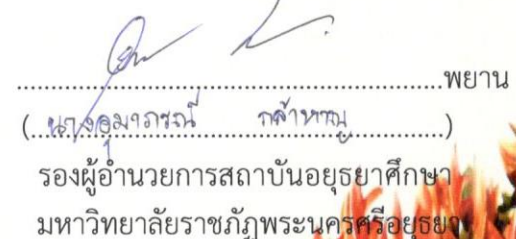 ........................................................พยาน
(....นางอุมาภรณ์ กล้าหาญ............)
รองผู้อำนวยการสถาบันอยุธยาศึกษา
มหาวิทยาลัยราชภัฏพระนครศรีอยุธยา